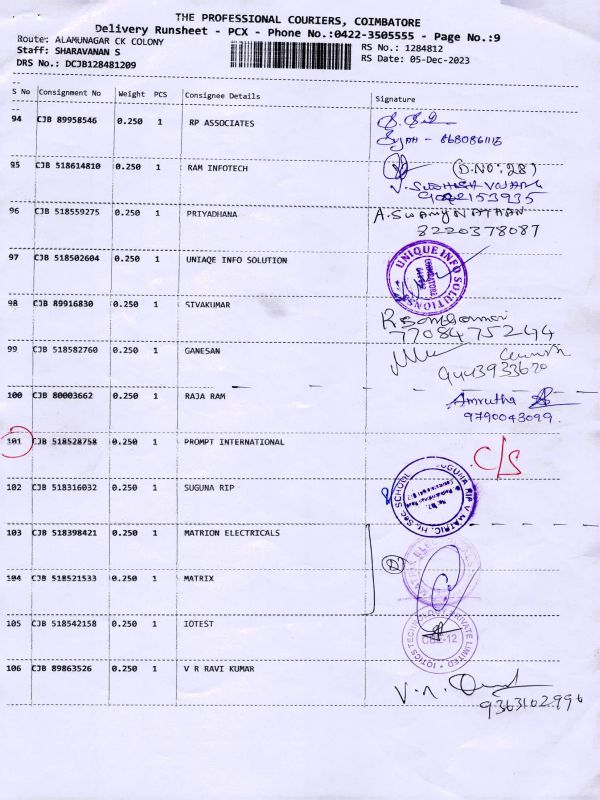 THE PROFESSIONAL COURIERS, COIMBATORE
Delivery Runsheet - PCX - Phone No.:0422-3505555 - Page No.:9
Route: ALAMUNAGAR CK COLONY
RS No.: 1284812
Staff: SHARAVANAN S
RS Date: 05-Dec-2023
DRS No.: DCJB128481209
S No Consignment No Weight PCS Consignee Details Signature
94 CJB 89958546 0.250 1 RP ASSOCIATES
95 CJB 518614810 0.250 1 RAM INFOTECH (D.NO:28)
96 CJB 518559275 0.250 1 PRIYADHANA A.SWAMYNATHAN
8220378087
97 CJB 518502604 0.250 1 UNIAQE INFO SOLUTION UNIQUE INFO SOLUTIONS
98 CJB 89916830 0.250 1 SIVAKUMAR
7708475244
99 CJB 518582760 0.250 1 GANESAN
9443933670
100 CJB 80003662 0.250 1 RAJA RAM Amrutha
9790043099
101 CJB 518528758 0.250 1 PROMPT INTERNATIONAL C/S
102 CJB 518316032 0.250 1 SUGUNA RIP SUGUNA RIP V MATRIC. Hr.Sec SCHOOL
103 CJB 518398421 0.250 1 MATRION ELECTRICALS
104 CJB 518521533 0.250 1 MATRIX
105 CJB 518542158 0.250 1 IOTEST IOTICS TECHNOLOGY PRIVATE LIMITED
CBE-12
106 CJB 89863526 0.250 1 V R RAVI KUMAR
9363102996